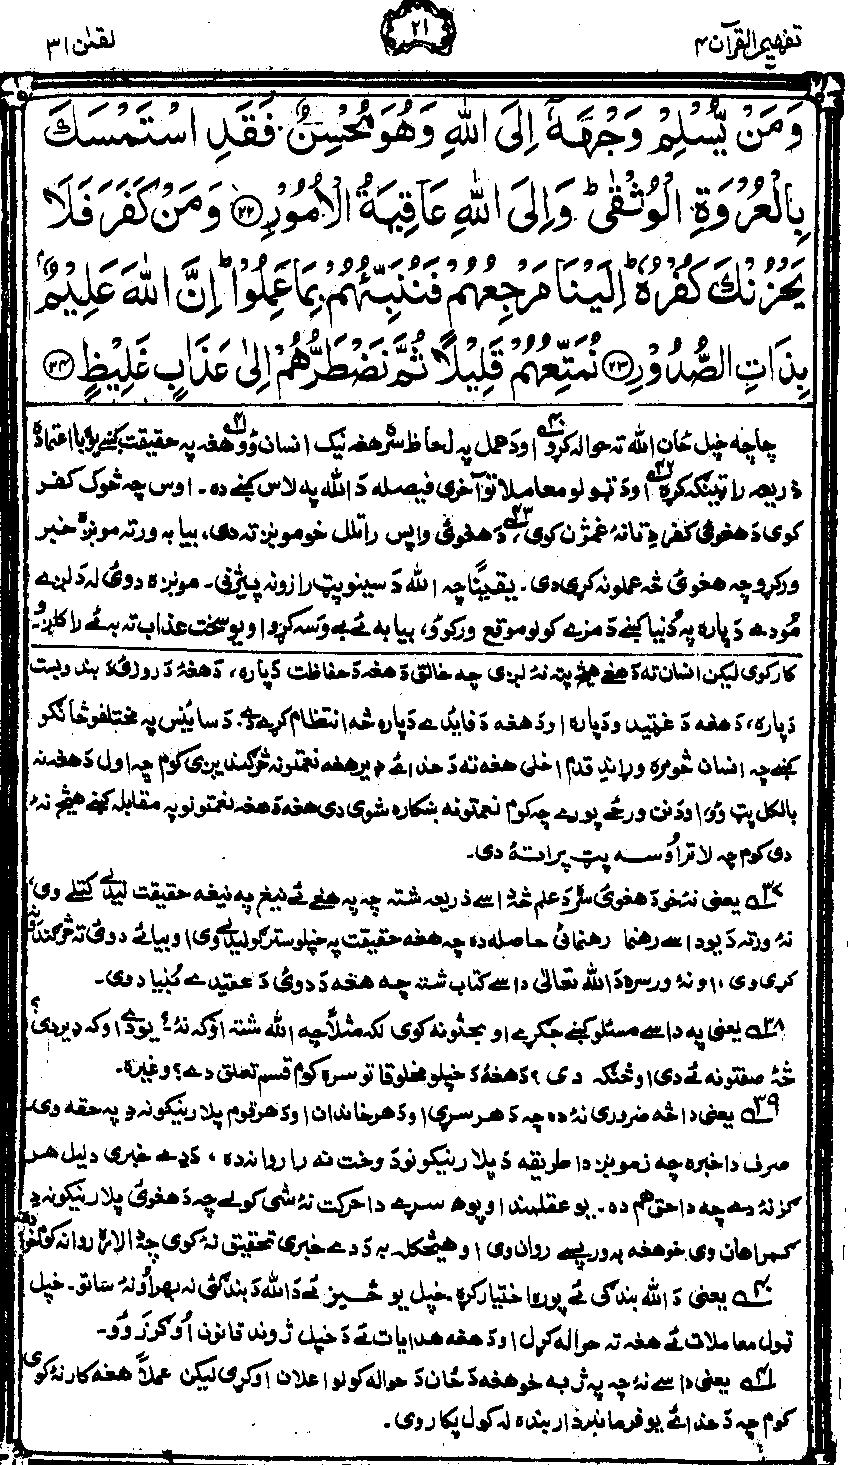 تفهيم القرآن ۴
۲۱
لقمٰن ۳۱
وَمَنْ يُّسْلِمْ وَجْهَهٗٓ اِلَى اللّٰهِ وَهُوَ مُحْسِنٌ فَقَدِ اسْتَمْسَكَ
بِالْعُرْوَةِ الْوُثْقٰىؕ وَاِلَى اللّٰهِ عَاقِبَةُ الْاُمُوْرِ ۝۲۲ وَمَنْ كَفَرَ فَلَا
يَحْزُنْكَ كُفْرُهٗؕ اِلَيْنَا مَرْجِعُهُمْ فَنُنَبِّئُهُمْ بِمَا عَمِلُوْاؕ اِنَّ اللّٰهَ عَلِيْمٌۢ
بِذَاتِ الصُّدُوْرِ ۝۲۳ نُمَتِّعُهُمْ قَلِيْلًا ثُمَّ نَضْطَرُّهُمْ اِلٰى عَذَابٍ غَلِيْظٍ ۝۲۴
چاچه خپل ځان الله ته حواله کړو۴۰ او د عمل په لحاظ سره هغه نیک انسان وو۴۱ هغه په حقیقت کښې یوه با اعتماده
ذریعه راټینګه کړه۴۲ او د ټولو معاملاتو آخری فیصله د الله په لاس کښې ده۔ اوس چه څوک کفر
کوی د هغوئ کفر دِ تا نه غمژن کوی۴۳، د هغوئ واپس راتلل خو مونږ ته دی، بیا به ورته مونږه خبر
ورکړو چه هغوئ څه عملونه کړی دی۔ یقینًا چه الله د سینو پټ رازونه پیژنی۔ مونږه دوئ له د لږے
مُودے دپاره په دُنیا کښې د مزے کولو موقع ورکوؤ، بیا به ئے بے وسه کړو او یو سخت عذاب ته به ئے راکاږو۔
کار کوی لیکن انسان ته د هغے هیڅ پته نهٔ لږی چه خالق د هغه د حفاظت دپاره، د هغهٔ د روزئ د بندوبست
دپاره، د هغه د غټیدو دپاره او د هغه د فایدے دپاره څه انتظام کړے دے۔ د سائنس په مختلفو څانګو
کښې چه انسان څومره وړاندِ قدم اخلی هغه ته د خدائے ډیر هغه نعمتونه څرګندیږی کوم چه اول د هغه نه
بالکل پټ وو، او د نن ورځے پورے چه کوم نعمتونه ښکاره شوی دی هغه د هغه نعمتونو په مقابله کښې هیڅ نهٔ
دی کوم چه لا تراؤسه پټ پراتهٔ دی۔
۳۷ یعنی نهٔ خو د هغوئ سره د علم څهٔ داسے ذریعه شته چه په هغے ئے نیغ په نیغه حقیقت لیدلے کتلے وی،
نهٔ ورته د یو داسے رهنما رهنمائی حاصله ده چه هغه حقیقت په خپلو سترګو لیدلے وی او بیا ئے دوئ ته څرګند
کړی وی، او نهٔ ورسره د الله تعالیٰ داسے کتاب شته چه هغه د دوئ د عقیدے بُنیاد وی۔
۳۸ یعنی په داسے مسئلو کښې جګړے او بحثونه کوی لکه مثلًا چه الله شته اؤ که نهٔ؟ یو دے او که ډیر دی؟
څهٔ صفتونه ئے دی او څنګه دی؟ د هغهٔ د خپلو مخلوقاتو سره کوم قسم تعلق دے؟ وغیره۔
۳۹ یعنی دا څه ضروری نهٔ ده چه د هر سړی او د هر خاندان او د هر قوم پلار نیکونه دِ په حقه وی۔
صرف دا خبره چه زمونږ دا طریقه د پلار نیکونو د وخت نه را روانه ده، د دِے خبری دلیل هر
ګز نهٔ دے چه دا حق هم ده۔ یو عقلمند او پوهه سړے دا حرکت نهٔ شی کولے چه د هغوئ پلار نیکونه دِ
ګمراهان وی خو هغه به ورپسے روان وی او هیڅکله به د دے خبری تحقیق نهٔ کوی چه په کومه لار روانه
۴۰ یعنی د الله بندګی ئے پوره اختیار کړه خپل یو څیز ئے د الله د بندګئ نه بهر اؤ نهٔ ساتو۔ خپل
ټول معاملات ئے هغه ته حواله کړل او د هغه هدایات ئے د خپل ژوند قانون اُوګرزوُو۔
۴۱ یعنی داسے نهٔ چه په ژبه خو هغه د ځان د حواله کولو اعلان اوکړی لیکن عملًا هغه کار نهٔ کوی
کوم چه د خدائے یو فرمانبردار بنده له کول پکار وی۔